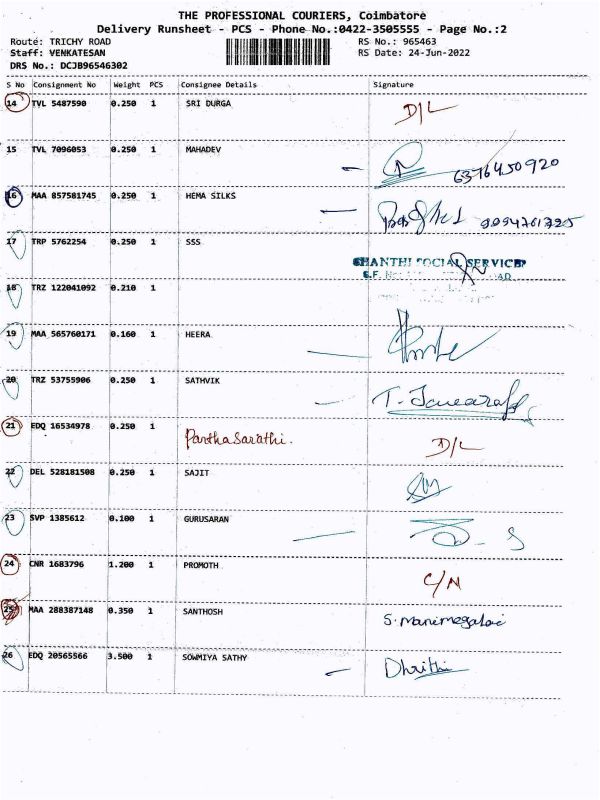 THE PROFESSIONAL COURIERS, Coimbatore
Delivery Runsheet - PCS - Phone No.:0422-3505555 - Page No.:2
Route: TRICHY ROAD RS No.: 965463
Staff: VENKATESAN RS Date: 24-Jun-2022
DRS No.: DCJB96546302
S No Consignment No Weight PCS Consignee Details Signature
14 TVL 5487590 0.250 1 SRI DURGA D/L
15 TVL 7096053 0.250 1 MAHADEV 6376450920
16 MAA 857581745 0.250 1 HEMA SILKS 9094761725
17 TRP 5762254 0.250 1 SSS SHANTHI SOCIAL SERVICE
18 TRZ 122041092 0.210 1
19 MAA 565760171 0.160 1 HEERA
20 TRZ 53755906 0.250 1 SATHVIK
21 EDQ 16534978 0.250 1 Parthasarathi. D/L
22 DEL 528181508 0.250 1 SAJIT
23 SVP 1385612 0.100 1 GURUSARAN
24 CNR 1683796 1.200 1 PROMOTH C/N
25 MAA 288387148 0.350 1 SANTHOSH S. Manimegalai
26 EDQ 20565566 3.500 1 SOWMIYA SATHY Dhrithi